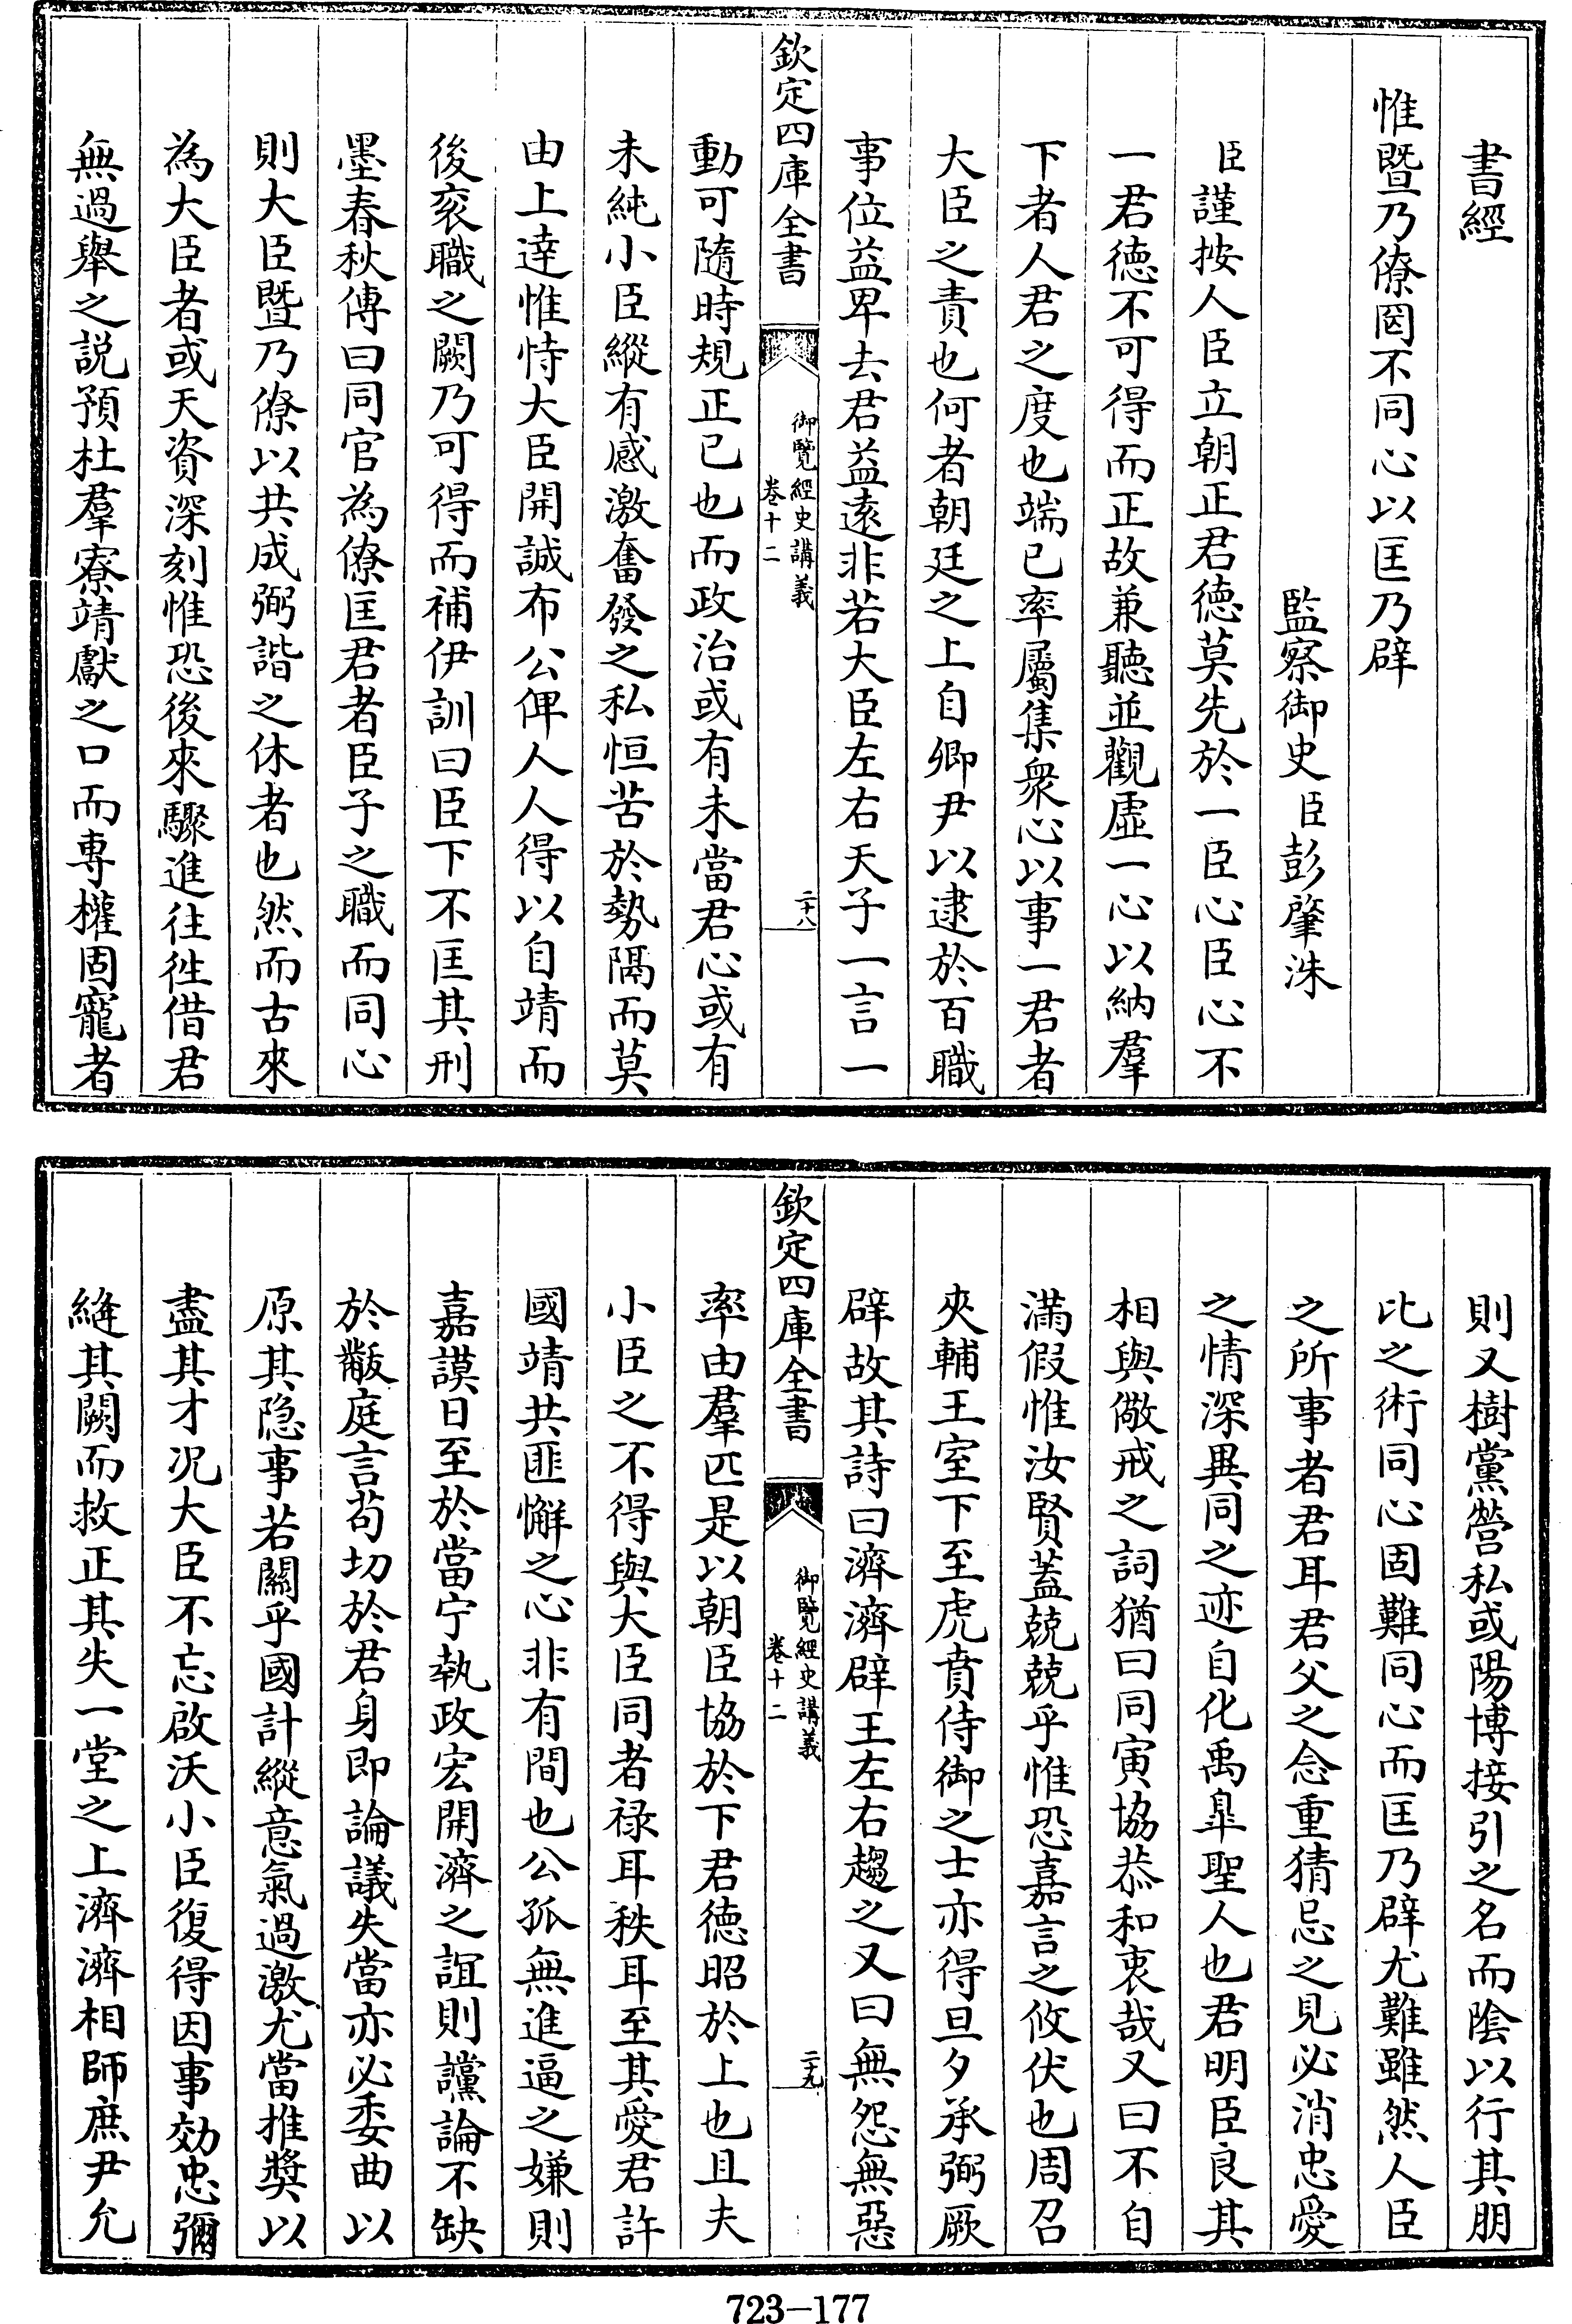 書經
惟暨乃僚罔不同心以匡乃辟
監察御史臣彭肇洙
臣謹按人臣立朝正君德莫先於一臣心臣心不
一君德不可得而正故兼聽並觀虛一心以納羣
下者人君之度也端已率屬集衆心以事一君者
大臣之責也何者朝廷之上自卿尹以逮於百職
事位益卑去君益遠非若大臣左右天子一言一
欽定四庫全書
御覽經史講義
卷十二
二十八
動可隨時規正已也而政治或有未當君心或有
未純小臣縱有感激奮發之私恒苦於勢隔而莫
由上達惟恃大臣開誠布公俾人人得以自靖而
後衮職之闕乃可得而補伊訓曰臣下不匡其刑
墨春秋傳曰同官為僚匡君者臣子之職而同心
則大臣暨乃僚以共成弼諧之休者也然而古來
為大臣者或天資深刻惟恐後來驟進往往借君
無過舉之説預杜羣寮靖獻之口而專權固寵者
則又樹黨營私或陽博接引之名而陰以行其朋
比之術同心固難同心而匡乃辟尤難雖然人臣
之所事者君耳君父之念重猜忌之見必消忠愛
之情深異同之迹自化禹臯聖人也君明臣良其
相與儆戒之詞猶曰同寅協恭和衷哉又曰不自
滿假惟汝賢蓋兢兢乎惟恐嘉言之攸伏也周召
夾輔王室下至虎賁侍御之士亦得旦夕承弼厥
辟故其詩曰濟濟辟王左右趨之又曰無怨無惡
欽定四庫全書
御覽經史講義
卷十二
二十九
率由羣匹是以朝臣協於下君德昭於上也且夫
小臣之不得與大臣同者祿耳秩耳至其愛君許
國靖共匪懈之心非有間也公孤無進逼之嫌則
嘉謨日至於當宁執政宏開濟之誼則讜論不缺
於黻庭言苟切於君身即論議失當亦必委曲以
原其隐事若關乎國計縱意氣過激尤當推獎以
盡其才况大臣不忘啟沃小臣復得因事効忠彌
縫其闕而救正其失一堂之上濟濟相師庶尹允
723-177